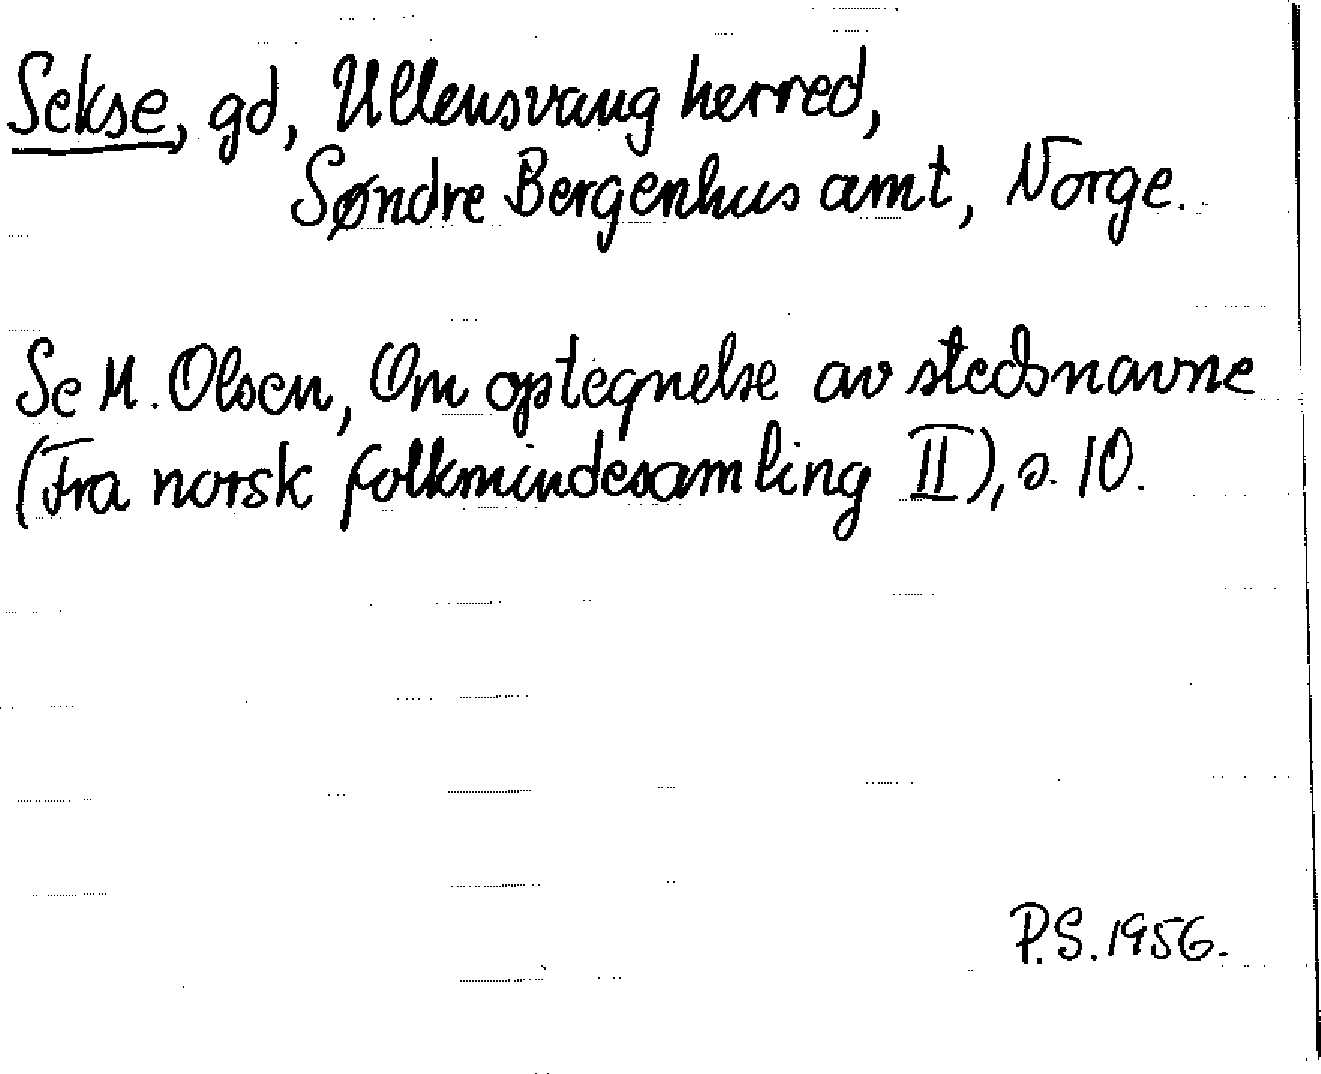 Sekse, gd, Ullensvang herred,
Søndre Bergenhus amt, Norge.
Se M. Olsen, Om optegnelse av stedsnavne
(Fra norsk folkmindesamling II), s. 10.
P.S. 1956.